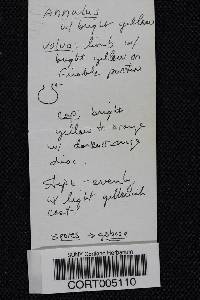 Annulus
w/ bright yellow
volva: limb w/
bright yellow on
friable portion
cap, bright
yellow to orange
w/ darker orange
disc.
Stipe - evenly
w/ light yellowish
cast.
spores
SUNY Cortland Herbarium
CORT005110